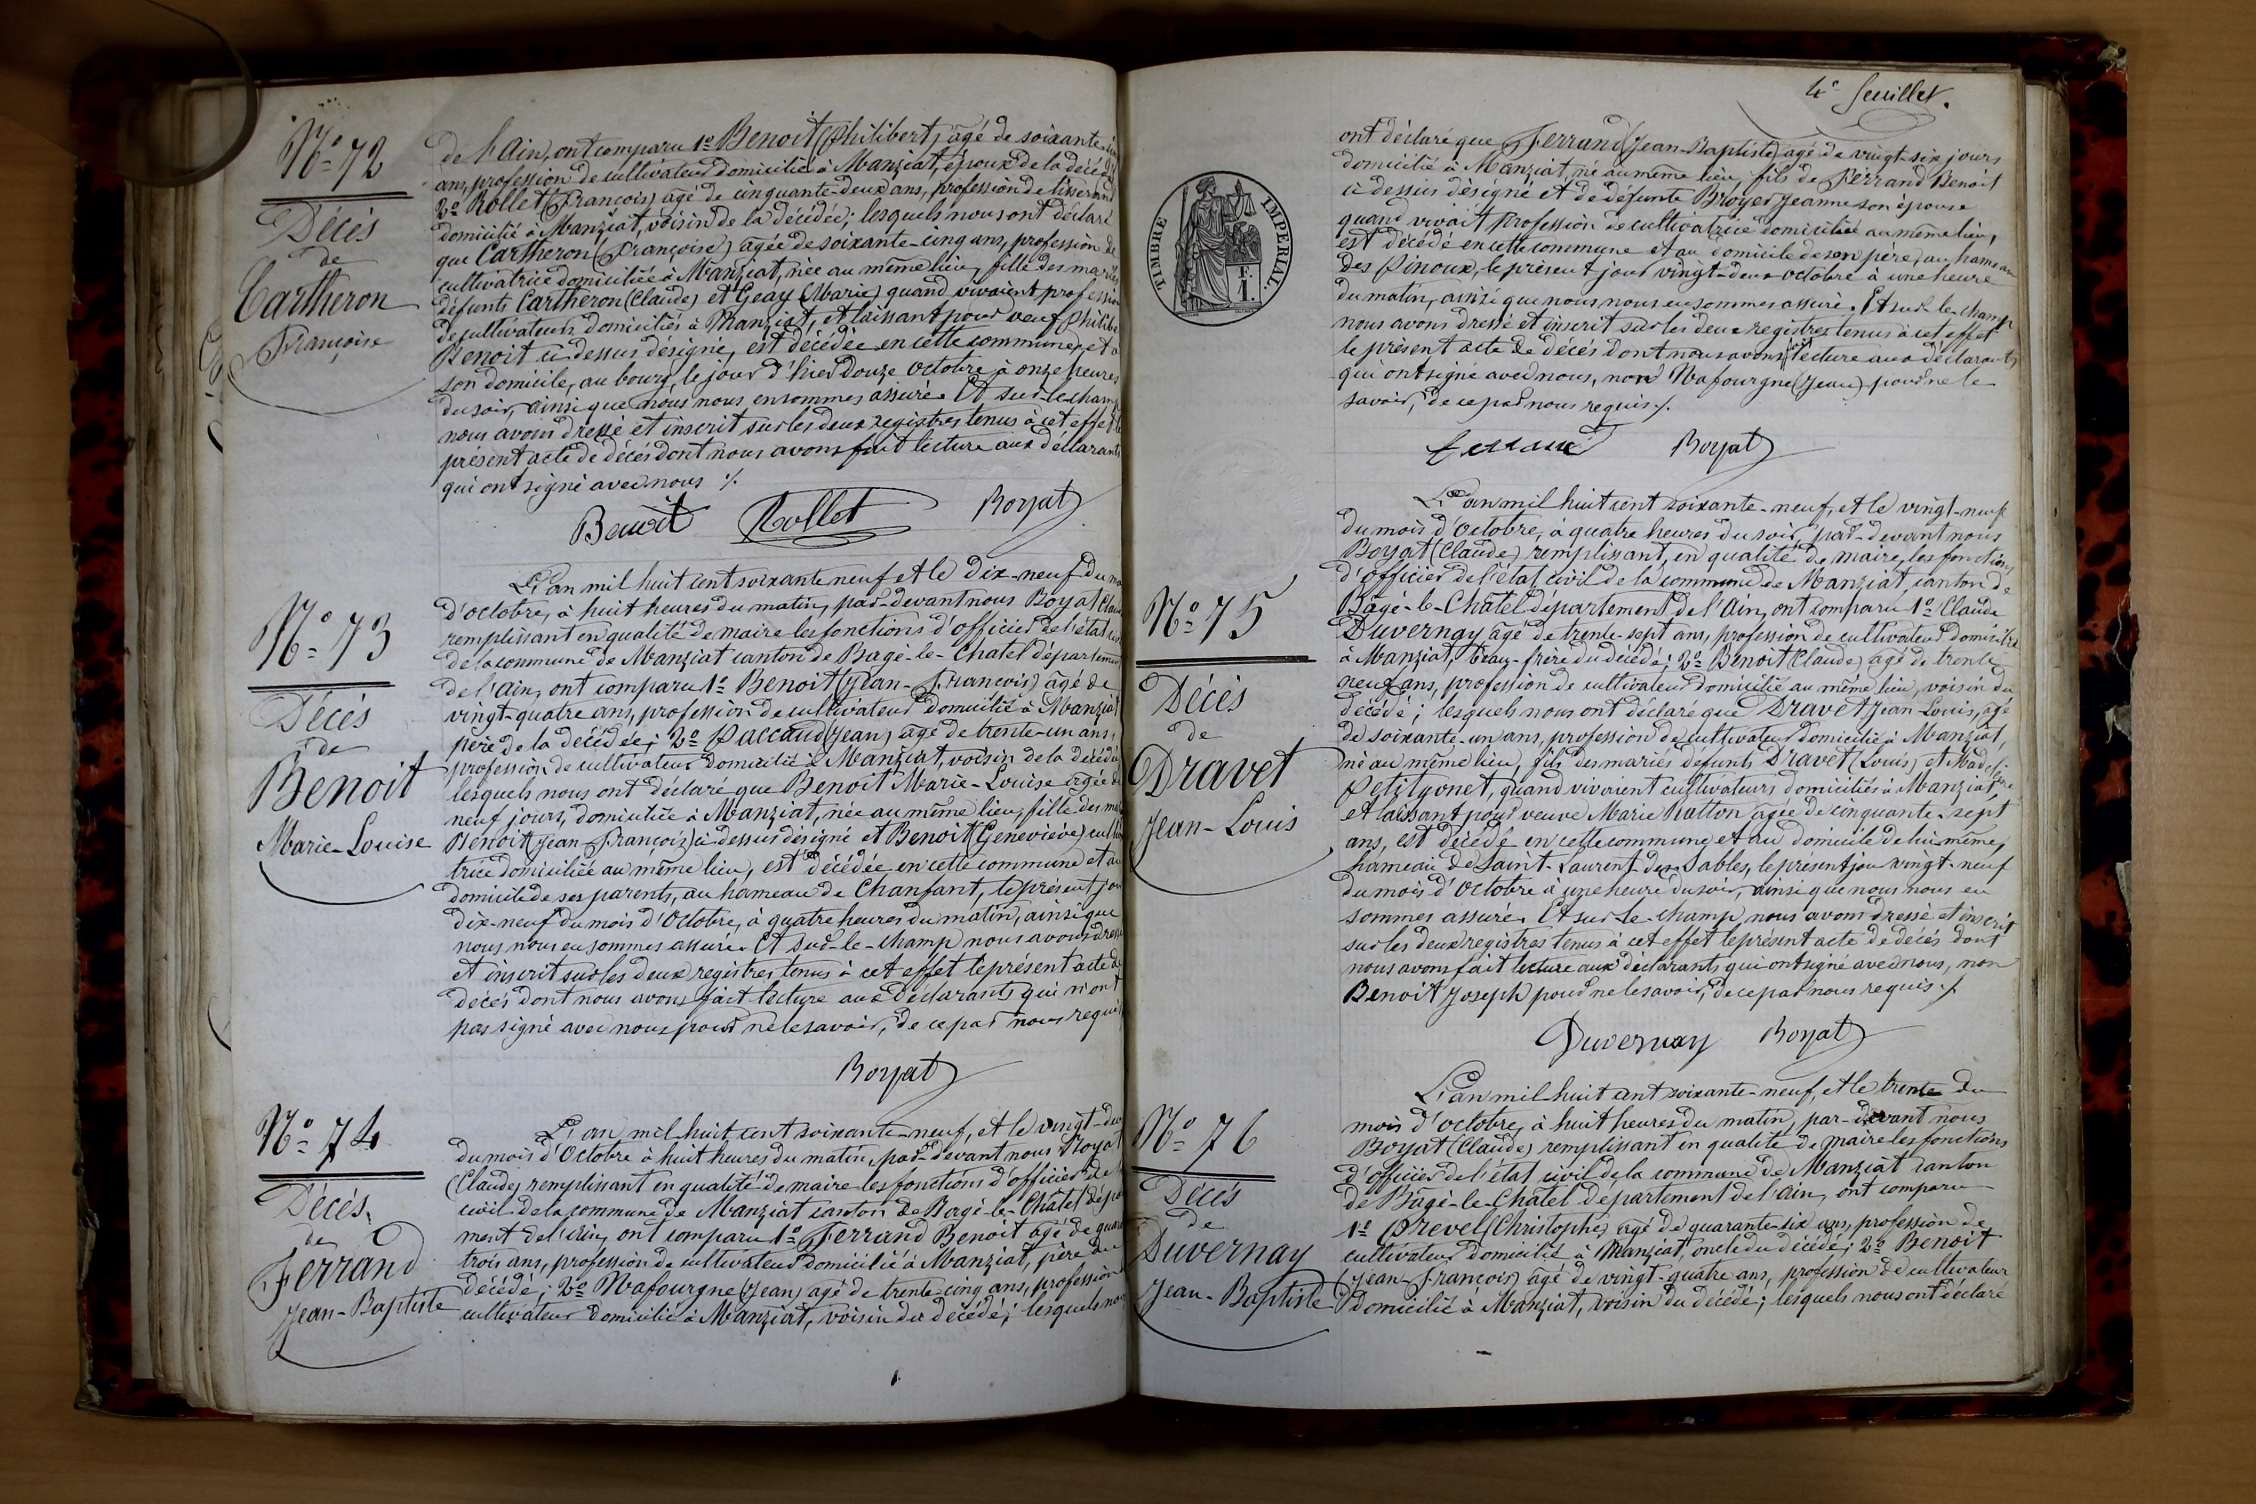 N° 72
Décès
de
Cartheron
Françoise
de l'Ain, ont comparu 1° Benoit (Philibert) âgé de soixante
ans, profession de cultivateur domicilié à Manziat, époux de la décédée
2° Rollet (François) âgé de cinquante-deux ans, profession de tisserand
domicilié à Manziat, voisin de la décédée; lesquels nous ont déclaré
que Cartheron (Françoise) âgée de soixante-cinq ans, profession de
cultivatrice domiciliée à Manziat, née au même lieu, fille des mariés
défunts Cartheron (Claude) et Geay (Marie) quand vivaient profession
de cultivateurs domiciliés à Manziat, et laissant pour veuf Philibe
Benoit ci-dessus désigné, est décédée en cette commune, et à
son domicile, au bourg, le jour d'hier douze octobre à onze heures
du soir, ainsi que nous nous en sommes assuré. Et sur-le-champ
nous avons dressé et inscrit sur les deux registres tenus à cet effet le
présent acte de décès dont nous avons fait lecture aux déclarants
qui ont signé avec nous ./.
Benoit Rollet Boyat
N° 73
Décès
de
Benoit
Marie-Louise
L'an mil huit cent soixante neuf et le dix-neuf du mois
d'octobre, à huit heures du matin, par-devant nous Boyat Claude
remplissant en qualité de maire les fonctions d'officier de l'état civil
de la commune de Manziat canton de Bagé-le-Chatel département
de l'Ain, ont comparu 1° Benoit (Jean-François) âgé de
vingt-quatre ans, profession de cultivateur domicilié à Manziat
père de la décédée; 2° Paccaud (Jean) âgé de trente-un ans,
profession de cultivateur domicilié à Manziat, voisin de la décédée
lesquels nous ont déclaré que Benoit Marie-Louise âgée de
neuf jours, domiciliée à Manziat, née au même lieu, fille des mariés
Benoit (Jean-François) ci-dessus désigné et Benoit (Geneviève) cultiva
trice domiciliée au même lieu, est décédée en cette commune et au
domicile de ses parents, au hameau de Chanfant, le présent jour
dix-neuf du mois d'Octobre, à quatre heures du matin, ainsi que
nous nous en sommes assuré. Et sur-le-champ nous avons dressé
et inscrit sur les deux registres tenus à cet effet le présent acte de
décès dont nous avons fait lecture aux déclarants qui n'ont
pas signé avec nous pour ne le savoir, de ce par nous requis
Boyat
N° 74
Décès
de
Ferrand
Jean-Baptiste
L'an mil huit cent soixante-neuf, et le vingt-deux
du mois d'Octobre à huit heures du matin, par-devant nous Boyat
(Claude) remplissant en qualité de maire les fonctions d'officier de
civil de la commune de Manziat canton de Bagé-le-Châtel départe
ment de l'Ain, ont comparu 1° Ferrand Benoit âgé de quarante
trois ans, profession de cultivateur domicilié à Manziat, père du
décédé; 2° Nafourgne (Jean) âgé de trente-cinq ans, profession
cultivateur domicilié à Manziat, voisin du décédé; lesquels nous
4e feuillet.
TIMBRE IMPERIAL.
F.
1.
ont déclaré que Ferrand (Jean-Baptiste) âgé de vingt-six jours
domicilié à Manziat, né au même lieu, fils de Ferrand Benoit
ci-dessus désigné et de défunte Broyer Jeanne son épouse
quand vivait profession de cultivatrice domiciliée au même lieu,
est décédé en cette commune et au domicile de son père, au hameau
des Pinoux, le présent jour vingt-deux octobre à une heure
du matin, ainsi que nous nous en sommes assuré. Et sur-le-champ
nous avons dressé et inscrit sur les deux registres tenus à cet effet
le présent acte de décès dont nous avons fait lecture aux déclarants
qui ont signé avec nous, non Nafourgne (Jean) pour ne le
savoir, de ce par nous requis ./.
Ferrand Boyat
N° 75
Décès
de
Dravet
Jean-Louis
L'an mil huit cent soixante-neuf, et le vingt-neuf
du mois d'Octobre, à quatre heures du soir, par-devant nous
Boyat (Claude) remplissant, en qualité de maire, les fonctions
d'officier de l'état civil de la commune de Manziat, canton de
Bâgé-le-Châtel département de l'Ain, ont comparu 1° Claude
Duvernay âgé de trente-sept ans, profession de cultivateur domicilié
à Manziat, beau-frère du décédé; 2° Benoit (Claude) âgé de trente
neuf ans, profession de cultivateur domicilié au même lieu, voisin du
décédé; lesquels nous ont déclaré que Dravet Jean-Louis, âgé
de soixante-un ans, profession de cultivateur domicilié à Manziat,
né au même lieu, fils des mariés défunts Dravet (Louis) et Madeleine
Petityonet, quand vivaient cultivateurs domiciliés à Manziat
et laissant pour veuve Marie Ratton âgée de cinquante-sept
ans, est décédé en cette commune et au domicile de lui-même,
hameau de Saint-Laurent-des-Sables, le présent jour vingt-neuf
du mois d'Octobre à une heure du soir, ainsi que nous nous en
sommes assuré. Et sur-le-champ nous avons dressé et inscrit
sur les deux registres tenus à cet effet le présent acte de décès dont
nous avons fait lecture aux déclarants qui ont signé avec nous, non
Benoit Joseph pour ne le savoir, de ce par nous requis ./.
Duvernay Boyat
N° 76
Décès
de
Duvernay
Jean-Baptiste
L'an mil huit cent soixante-neuf, et le trente du
mois d'octobre, à huit heures du matin, par-devant nous
Boyat (Claude) remplissant en qualité de maire les fonctions
d'officier de l'état civil de la commune de Manziat canton
de Bâgé-le-Chatel département de l'Ain, ont comparu
1° Prevel (Christophe) âgé de quarante-six ans, profession de
cultivateur domicilié à Manziat, oncle du décédé; 2° Benoit
(Jean-François) âgé de vingt-quatre ans, profession de cultivateur
domicilié à Manziat, voisin du décédé; lesquels nous ont déclaré